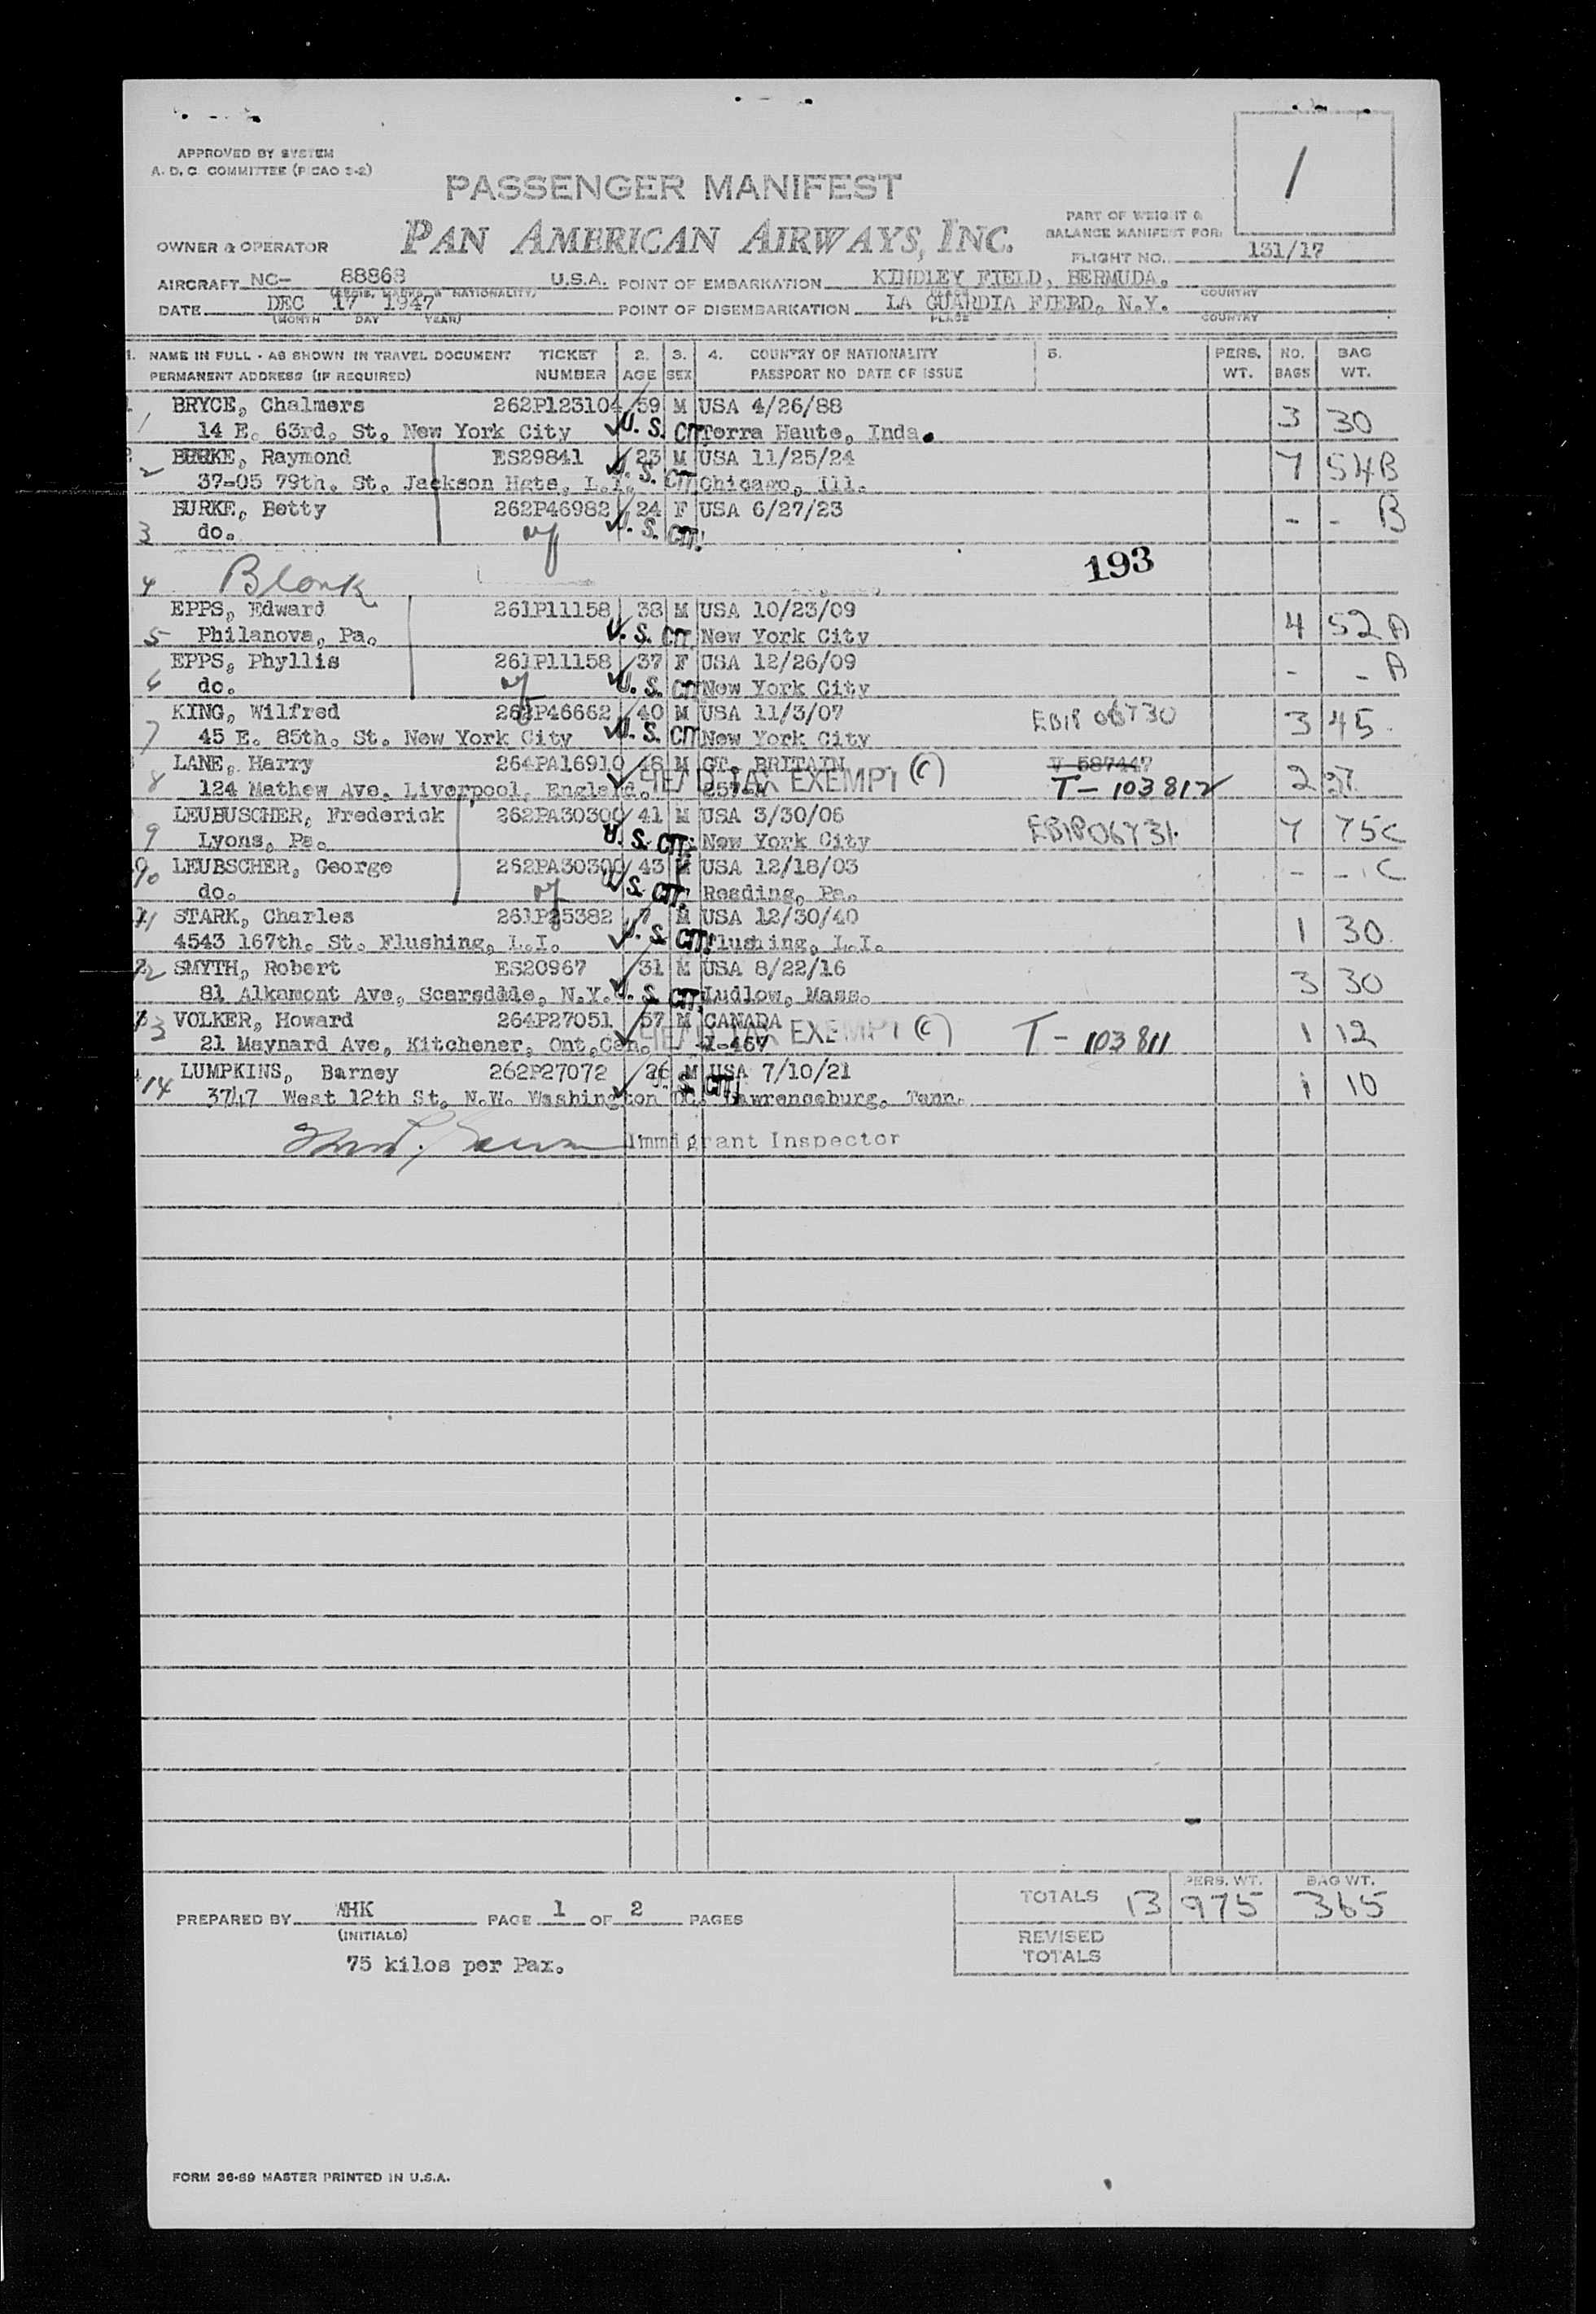 APPROVED BY SYSTEM
A. D. C. COMMITTEE (PICAO 3-2)
1
PASSENGER MANIFEST
PAN AMERICAN AIRWAYS, INC.
OWNER & OPERATOR
PART OF WEIGHT &
BALANCE MANIFEST FOR:
FLIGHT NO. 131/17
AIRCRAFT NC- 88868 U.S.A. POINT OF EMBARKATION KINDLEY FIELD, BERMUDA.
DATE DEC 17 1947 POINT OF DISEMBARKATION LA GUARDIA FIELD, N.Y.
(MONTH DAY YEAR) PLACE COUNTRY
1. NAME IN FULL - AS SHOWN IN TRAVEL DOCUMENT TICKET 2. 3. 4. COUNTRY OF NATIONALITY 5. PERS. NO. BAG
PERMANENT ADDRESS (IF REQUIRED) NUMBER AGE SEX PASSPORT NO DATE OF ISSUE WT. BAGS WT.
BRYCE, Chalmers 262P123104 59 M USA 4/26/88
1 14 E. 63rd. St. New York City U.S. CIT. Terra Haute, Inda. 3 30
BURKE, Raymond ES29841 23 M USA 11/25/24
2 37-05 79th. St. Jackson Hgts, L.I. U.S. CIT. Chicago, Ill. 7 54 B
BURKE, Betty 262P46982 24 F USA 6/27/23
3 do. U.S. CIT. - - B
193
4 Blank
EPPS, Edward 261P11158 38 M USA 10/23/09
5 Philanova, Pa. U.S. CIT. New York City 4 52 A
EPPS, Phyllis 261P11158 37 F USA 12/26/09
6 do. U.S. CIT. New York City - - A
KING, Wilfred 262P46662 40 M USA 11/3/07
7 45 E. 85th. St. New York City U.S. CIT. New York City 3 45
LANE, Harry 264PA16910 48 M GT. BRITAIN V 587447
HEAD TAX EXEMPT (C)
8 124 Mathew Ave, Liverpool, England. T-103812 2 27
LEUBUSCHER, Frederick 262PA30300 41 M USA 3/30/06
9 Lyons, Pa. U.S. CIT. New York City 7 75 C
LEUBSCHER, George 262PA30300 43 M USA 12/18/03
10 do. U.S. CIT. Reading, Pa. - - C
STARK, Charles 261P25382 7 M USA 12/30/40
11 4543 167th. St. Flushing, L.I. U.S. CIT. Flushing, L.I. 1 30
SMYTH, Robert ES20967 31 M USA 8/22/16
12 81 Alkamont Ave, Scarsddde, N.Y. U.S. CIT. Ludlow, Mass. 3 30
VOLKER, Howard 264P27051 57 M CANADA
HEAD TAX EXEMPT (C)
13 21 Maynard Ave, Kitchener, Ont, Can. T-103811 1 12
LUMPKINS, Barney 262P27072 26 M USA 7/10/21
14 3747 West 12th St. N.W. Washington DC. U.S. CIT. Lawrenceburg, Tenn. 1 10
Immigrant Inspector
PERS. WT. BAG WT.
TOTALS 13 975 365
PREPARED BY WHK PAGE 1 OF 2 PAGES
(INITIALS)
REVISED
TOTALS
75 kilos per Pax.
FORM 36-89 MASTER PRINTED IN U.S.A.